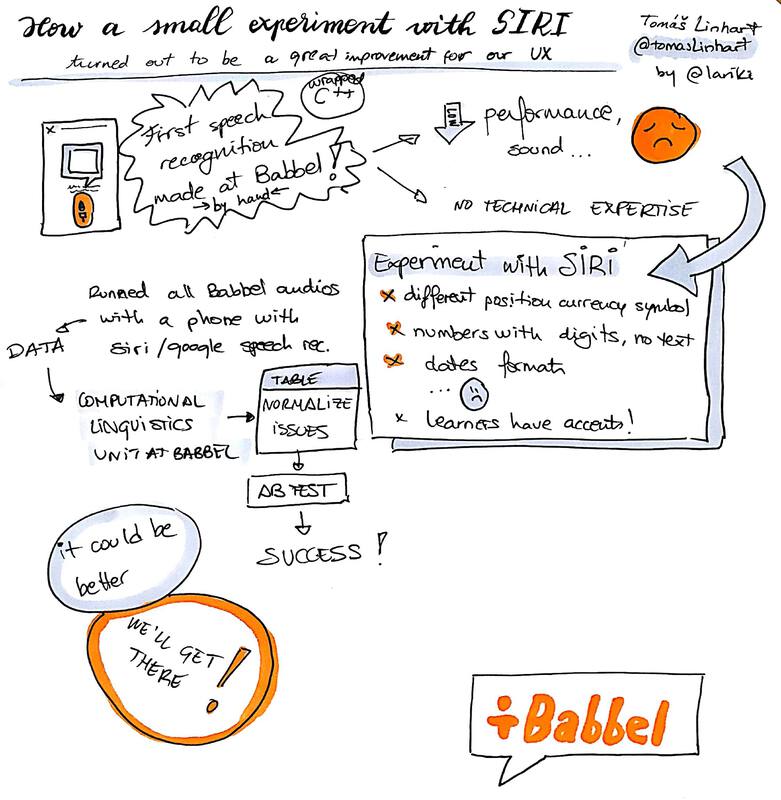 How a small experiment with SIRI
turned out to be a great improvement for our UX
Tomáš Linhart
@tomaslinhart
by @larika
wrapped
C++
First speech
recognition
made at Babbel!
→by hand←
LOW
performance,
sound...
NO TECHNICAL EXPERTISE
Experiment with SIRI
x different position currency symbol
x numbers with digits, no text
x dates formats
...
x learners have accents!
Runned all Babbel audios
with a phone with
Siri/google speech rec.
DATA
COMPUTATIONAL
LINGUISTICS
UNIT AT BABBEL
TABLE
NORMALIZE
ISSUES
AB TEST
SUCCESS!
it could be
better
WE'LL GET
THERE !
+Babbel